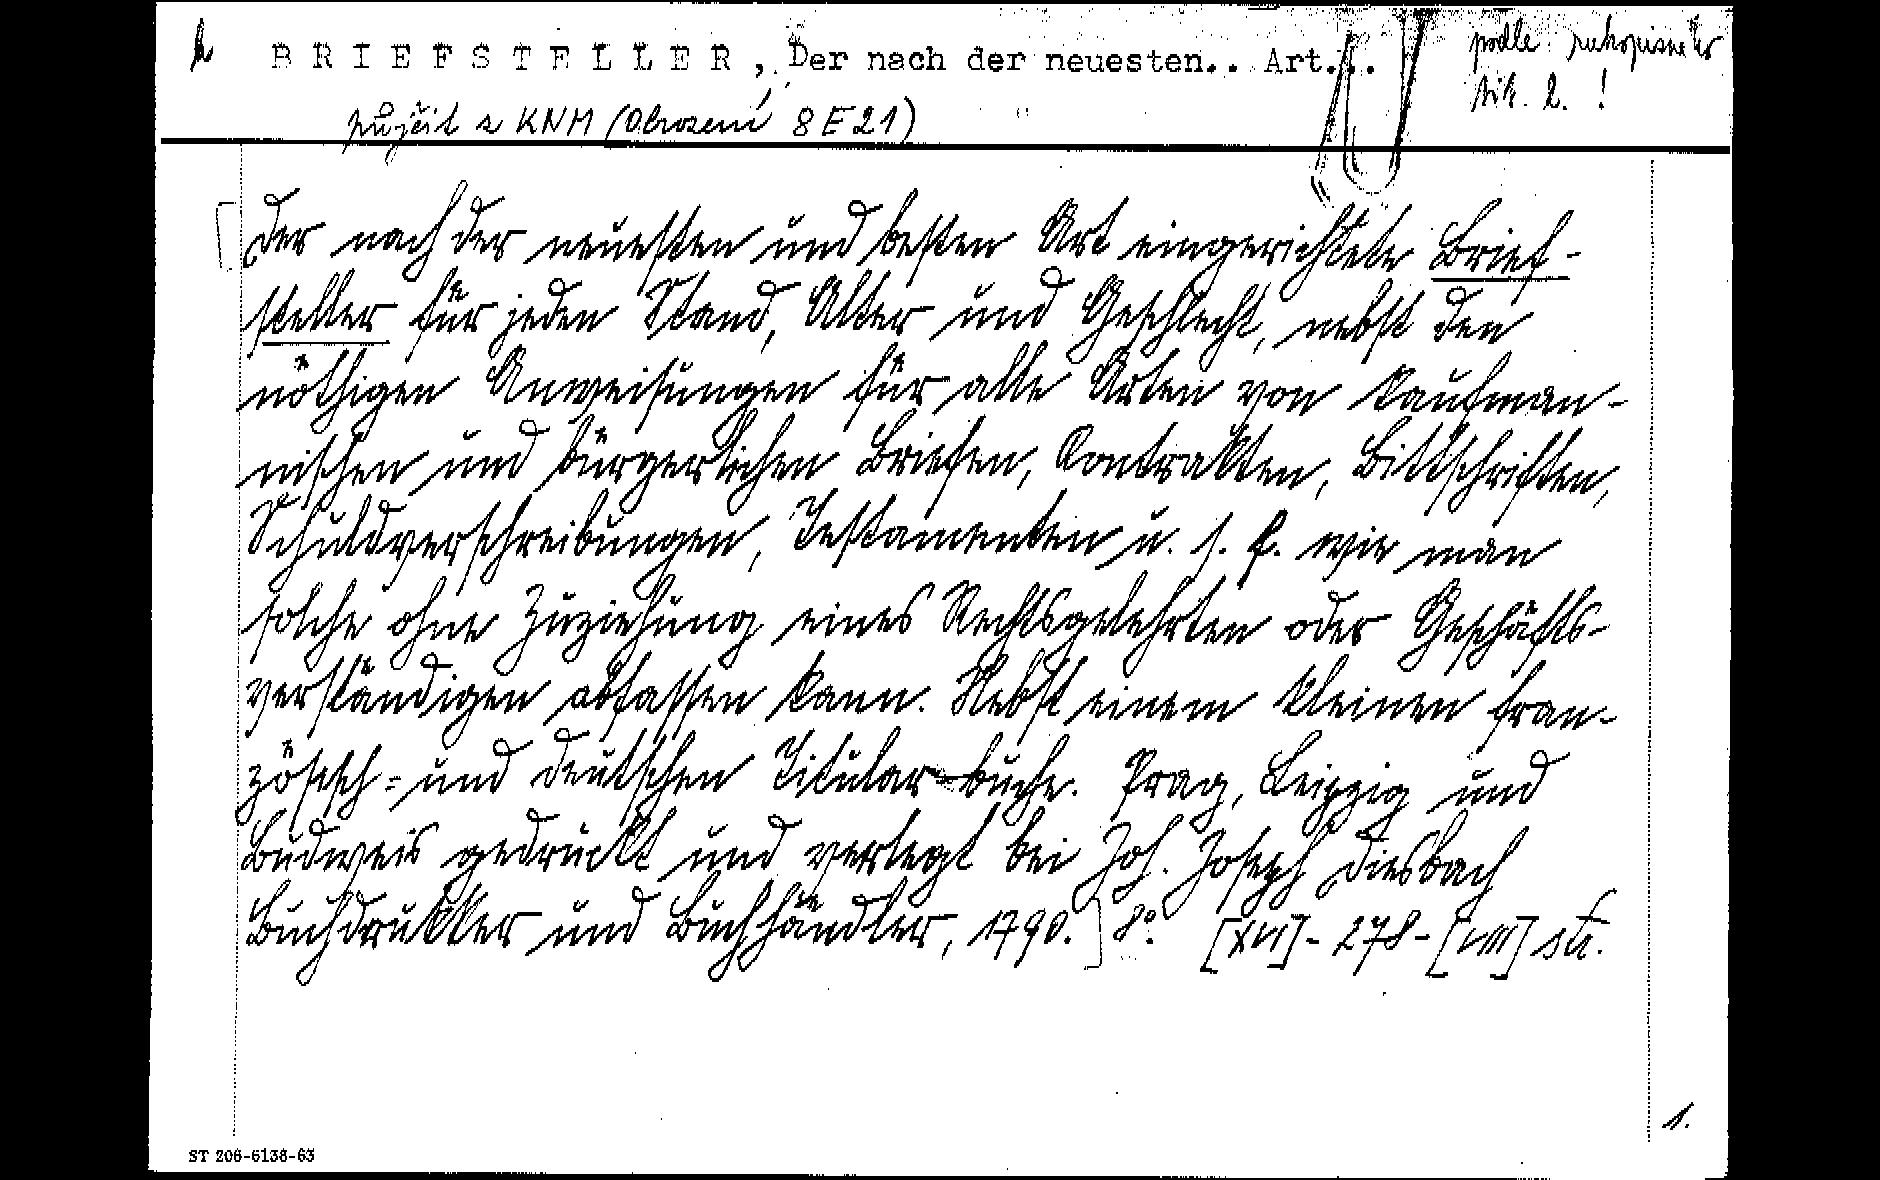 B R I E F S T E L L E R , Der nach der neuesten.. Art...
podle rukopisného
půjčit z KNM (Obrození 8 E 21)
[Der nach der neuesten und besten Art eingerichtete Brief-
steller für jeden Stand, Alter und Geschlecht, nebst den
nöthigen Anweisungen für alle Arten von kaufman-
nischen und bürgerlichen Briefen, Contrakten, Bittschriften,
Schuldverschreibungen, Testamenten u. s. f. wie man
solche ohne Zuziehung eines Rechtsgelehrten oder Geschäfts-
verständigen abfassen kann. Nebst einem kleinen fran-
zösisch= und deutschen Titularbuche. Prag, Leipzig und
Budweis gedruckt und verlegt bei Joh. Joseph Diesbach
Buchdrukker und Buchhändler, 1790.] 8° [XVI]- 278- [VIII] str.
1.
ST 206-6138-63